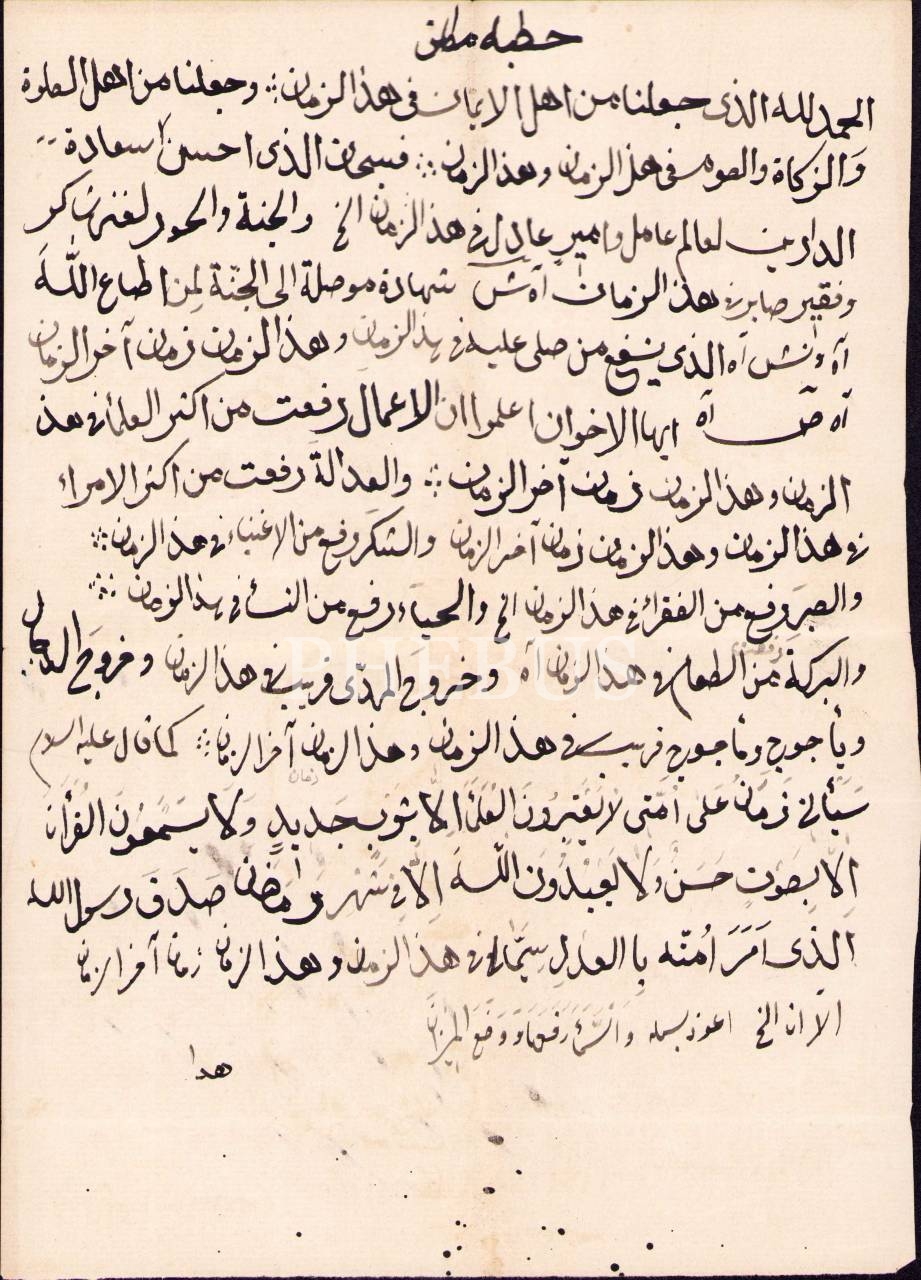 خطبه
الحمد لله الذى جعلنا من اهل الايمان فى هذا الزمان وجعلنا من اهل الصلوة
والزكاة والصوم فى هذ الزمان وهذ الزمان فسبحان الذى احسن سعادة
الدارين لعالم عامل وامير عادل فى هذ الزمان الخ والجنة والحور لغنى شاكر
وفقير صابر فى هذ الزمان آه ش شهادة موصلة الى الجنة لمن اطاع الله
آه الذى يشفع من صلى عليه فى هذ الزمان وهذ الزمان زمان آخر الزمان
آه ص آه ايها الاخوان اعلموا ان الاعمال رفعت من اكثر العلماء فى هذ
الزمان وهذ الزمان زمان آخر الزمان والعدالة رفعت من اكثر الامراء
فى هذا الزمان وهذ الزمان زمان آخر الزمان والشكر رفع من الاغنياء فى هذ الزمان
والصبر رفع من الفقراء فى هذ الزمان الخ والحياء رفع من النساء فى هذ الزمان
والبركة رفعت من الطعام فى هذ الزمان آه وخروج المهدى قريب فى هذ الزمان وخروج الدجال
ويأجوج ومأجوج قريب فى هذ الزمان وهذ الزمان زمان آخر الزمان كما قال عليه السلام
سَيَأتى زمَانٌ عَلى اُمّتى لا الاّ بثَوبٍ جَديدٍ وَلاَ يسمَعُونَ القُرأن
اِلاّ بِصَوتٍ حَسَنٍ وَلاَ يعبُدُونَ اللهَ اِلاّ فى شَهْرِ رمَضَانَ صَدَقَ رسول الله
الذى اَمَرَ اُمتَه بِالعدلِ سيّما فى هذ الزمان وهذ الزمان زمان آخر الزمان
الا ان الخ اعوذ بسمله وَالسَّمَاءَ رَفَعَهَا وَوَضَعَ الميزَانَ
هدا
PHEBUS